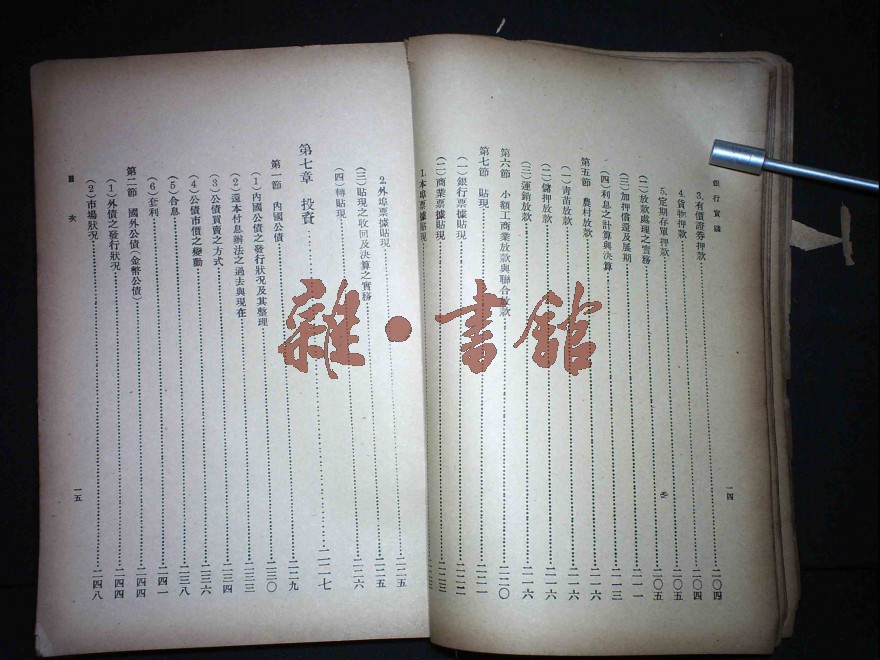 銀行實踐
一四
3.有價證券押款 二〇四
4.貨物押款 二〇四
5.定期存單押款 二〇五
(二)放款處理之實務 二一一
(三)加押償還及展期 二一三
(四)利息之計算與決算 二一六
第五節 農村放款 二一六
(一)青苗放款 二一六
(二)儲押放款 二一六
(三)運銷放款 二一六
第六節 小額工商業放款與聯合放款 二二〇
第七節 貼現 二二一
(一)銀行票據貼現 二二二
(二)商業票據貼現 二二三
1.本埠票據貼現
2.外埠票據貼現 二二五
(三)貼現之收回及決算之實務 二二五
(四)轉貼現 二二六
第七章 投資 二二七
第一節 內國公債 二二九
(1)內國公債之發行狀況及其整理 二三〇
(2)還本付息辦法之過去與現在 二三三
(3)公債買賣之方式 二三四
(4)公債市價之變動 二三六
(5)合息 二三八
(6)套利 二四一
第二節 國外公債(金幣公債) 二四四
(1)外債之發行狀況 二四四
(2)市場狀況 二四八
目次
一五
雜·書館